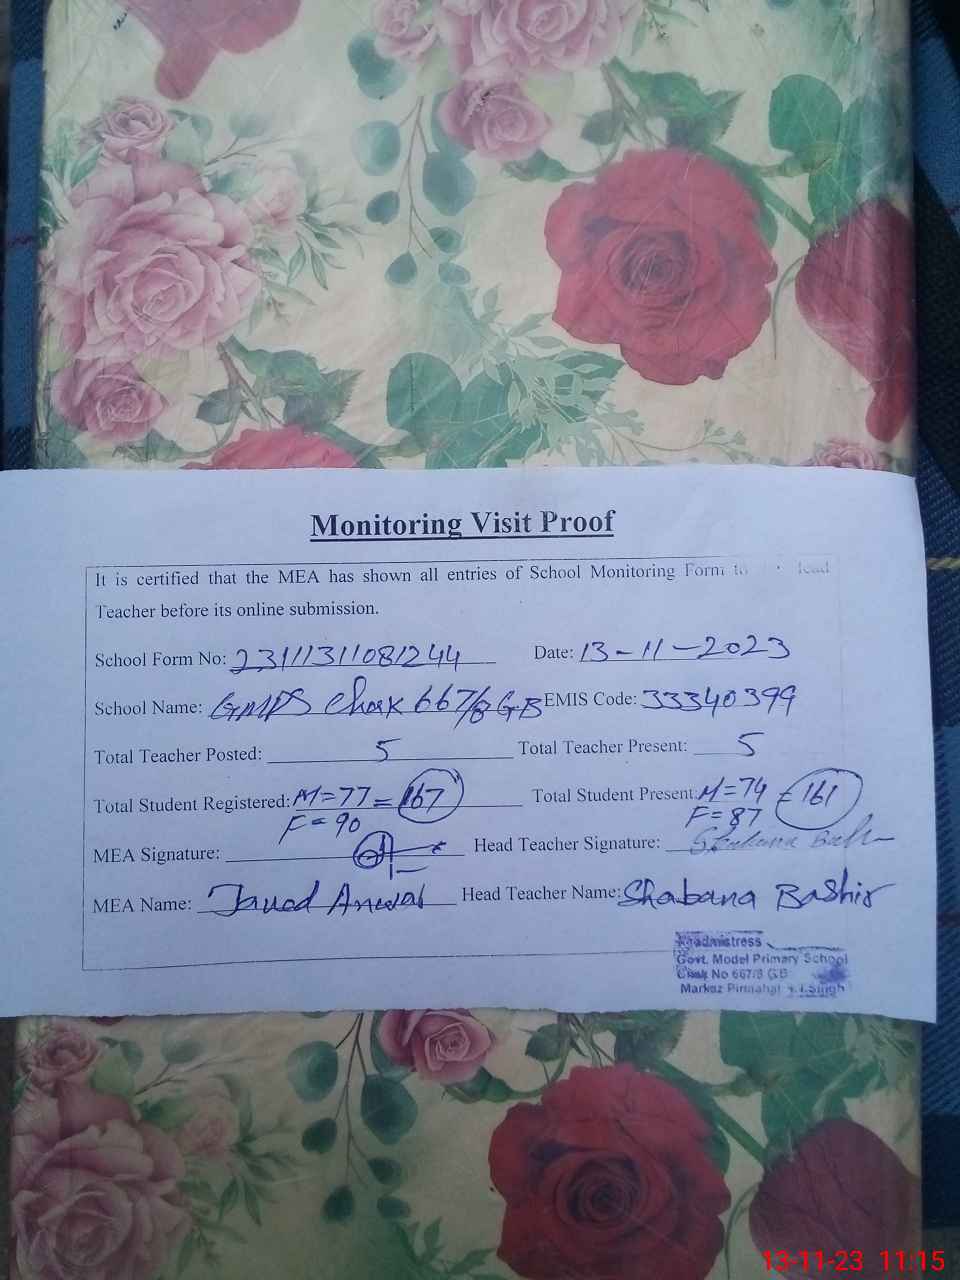 Monitoring Visit Proof
It is certified that the MEA has shown all entries of School Monitoring Form to
Teacher before its online submission.
School Form No: 2311131108 1244 Date: 13-11-2023
School Name: GMPS Chak 667/8 GB EMIS Code: 33340399
Total Teacher Posted: 5 Total Teacher Present: 5
Total Student Registered: M=77 = 167 Total Student Present: M=74 = 161
F=90 F=87
MEA Signature: Head Teacher Signature: Shabana
MEA Name: Javed Anwar Head Teacher Name: Shabana Bashir
Headmistress
Govt. Model Primary School
Chak No 667/8 GB
Markaz
13-11-23 11:15